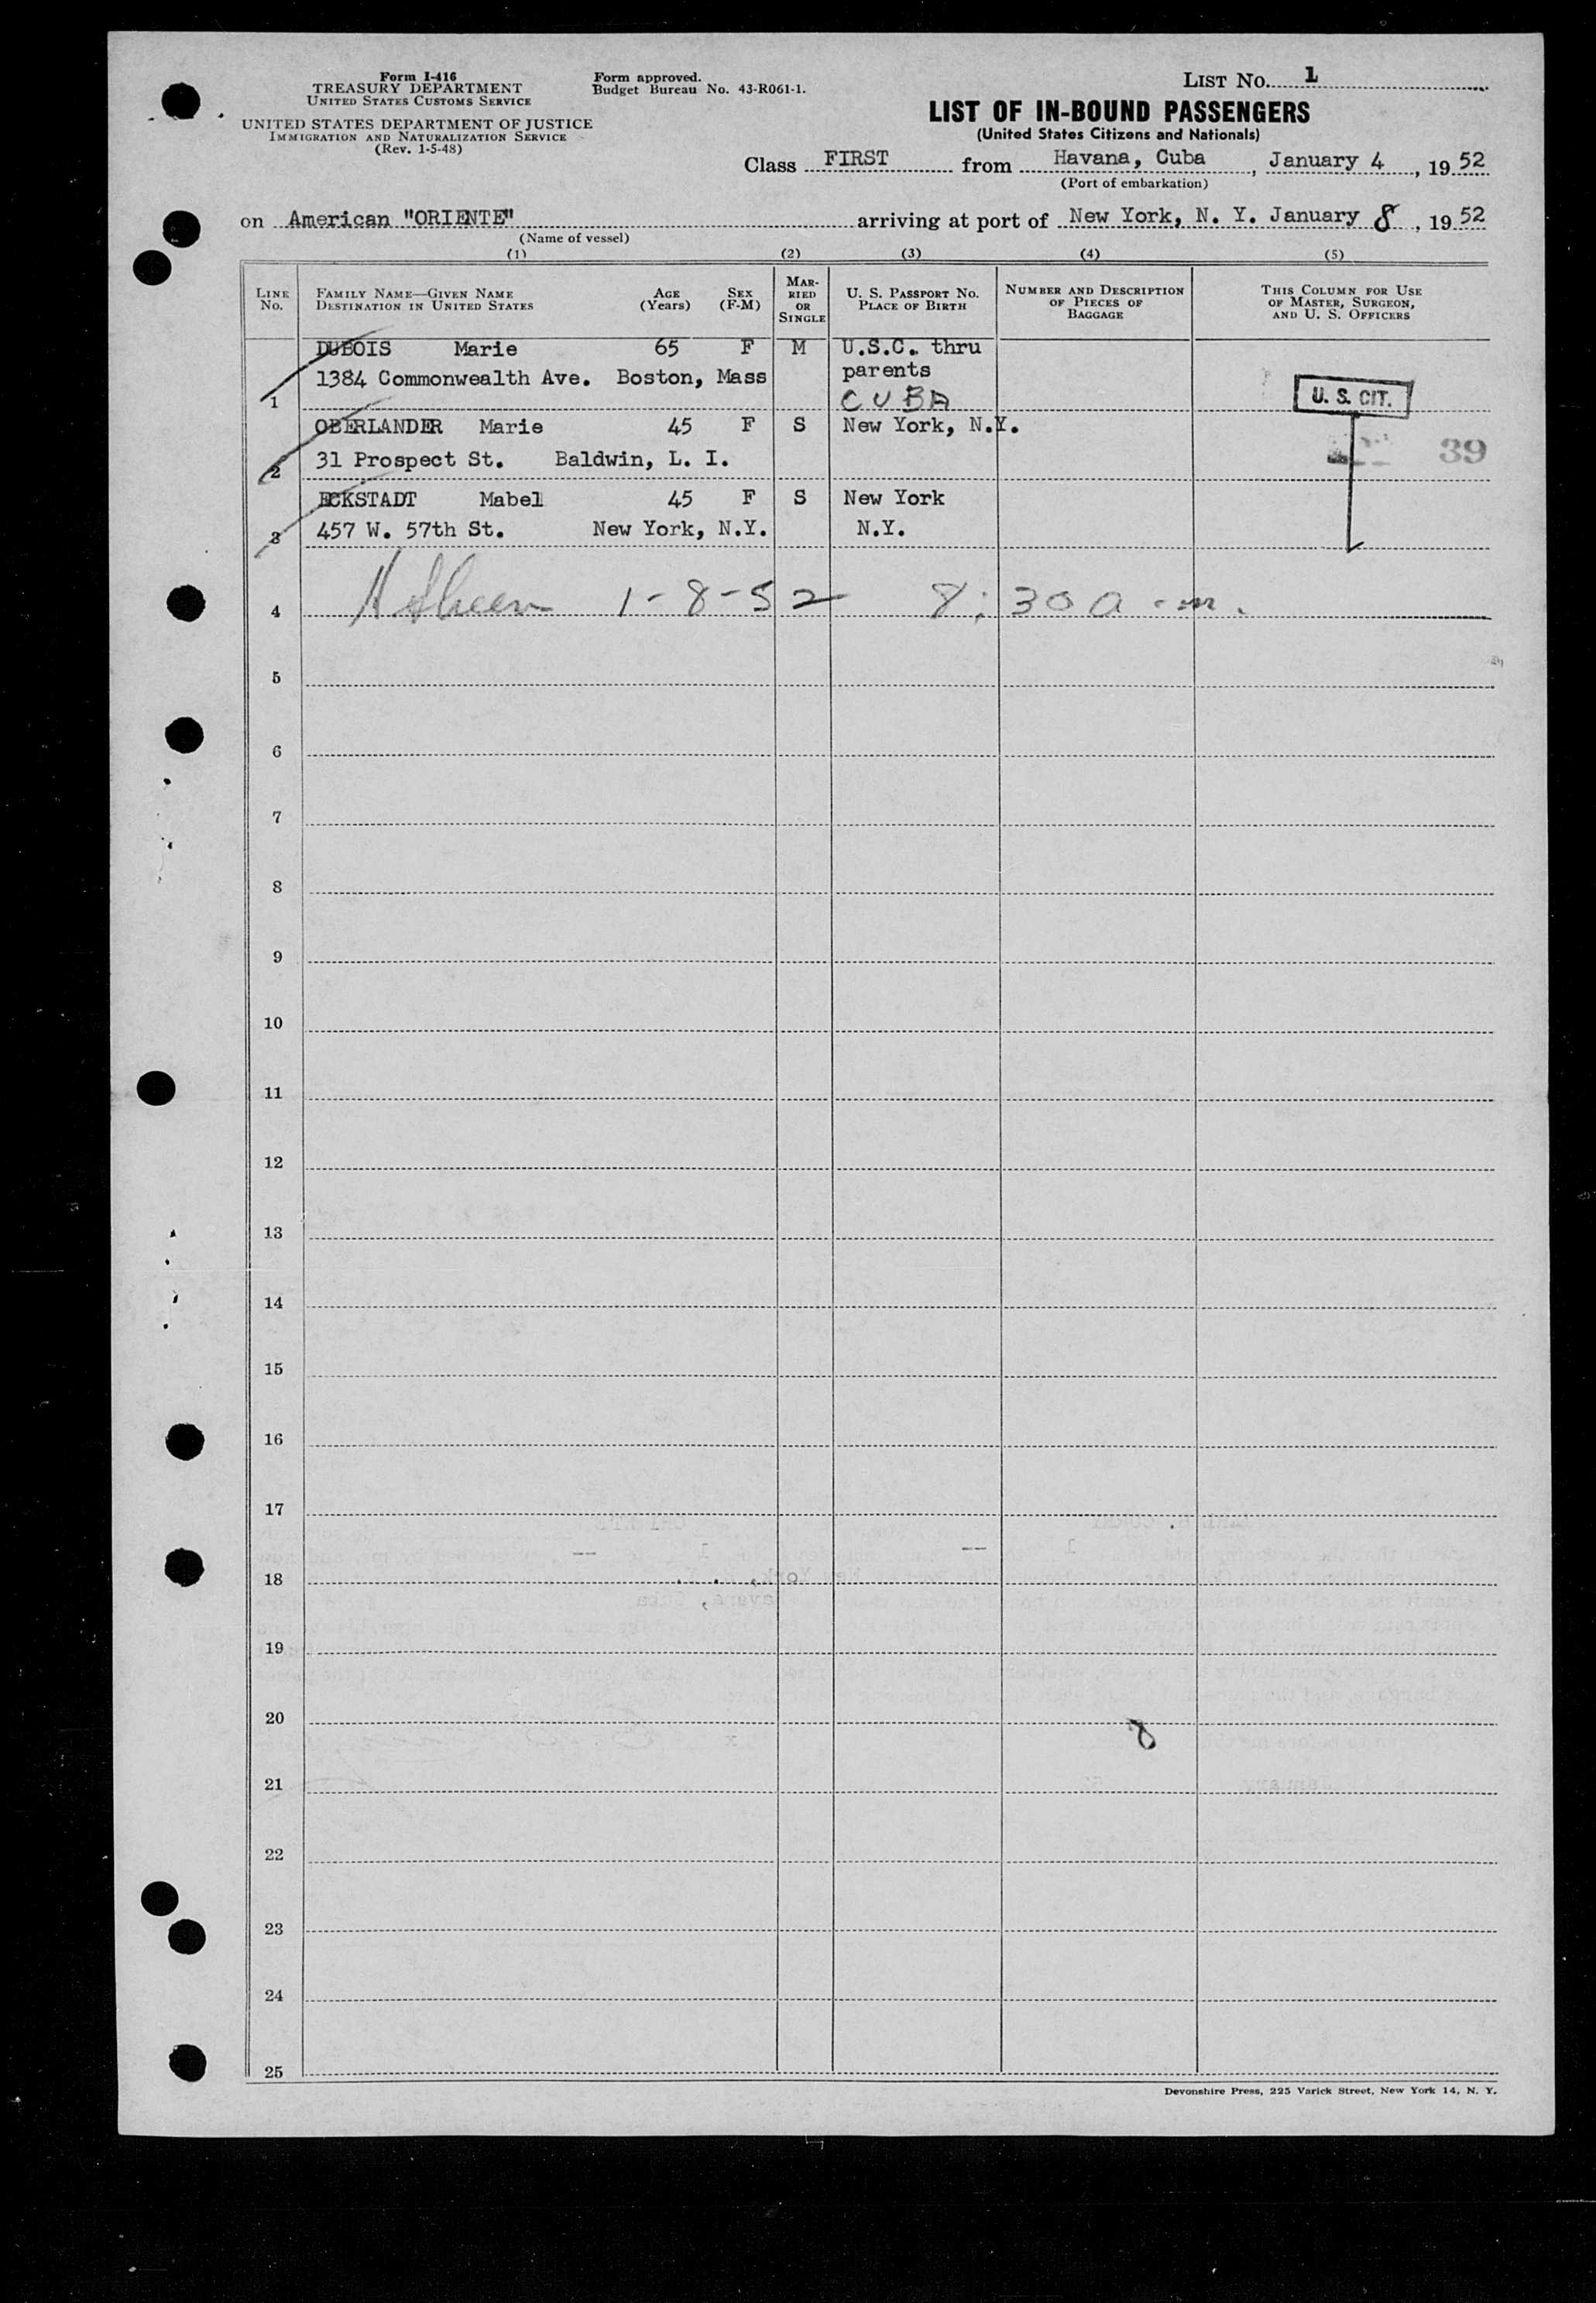 Form I-416
TREASURY DEPARTMENT
UNITED STATES CUSTOMS SERVICE
UNITED STATES DEPARTMENT OF JUSTICE
IMMIGRATION AND NATURALIZATION SERVICE
(Rev. 1-5-48)
Form approved.
Budget Bureau No. 43-R061-1.
LIST NO. 1
LIST OF IN-BOUND PASSENGERS
(United States Citizens and Nationals)
Class FIRST from Havana, Cuba, January 4, 1952
(Port of embarkation)
on American "ORIENTE" arriving at port of New York, N. Y. January 8, 1952
(Name of vessel)
(1) (2) (3) (4) (5)
LINE NO. FAMILY NAME—GIVEN NAME DESTINATION IN UNITED STATES AGE (Years) SEX (F-M) MARRIED OR SINGLE U. S. PASSPORT NO. PLACE OF BIRTH NUMBER AND DESCRIPTION OF PIECES OF BAGGAGE THIS COLUMN FOR USE OF MASTER, SURGEON, AND U. S. OFFICERS
DUBOIS Marie 65 F M U.S.C. thru
1384 Commonwealth Ave. Boston, Mass parents
1 CUBA U. S. CIT.
OBERLANDER Marie 45 F S New York, N.Y.
2 31 Prospect St. Baldwin, L. I. 39
ECKSTADT Mabel 45 F S New York
3 457 W. 57th St. New York, N.Y. N.Y.
4 1-8-52 8:30 a.m.
5
6
7
8
9
10
11
12
13
14
15
16
17
18
19
20
8
21
22
23
24
25
Devonshire Press, 225 Varick Street, New York 14, N. Y.